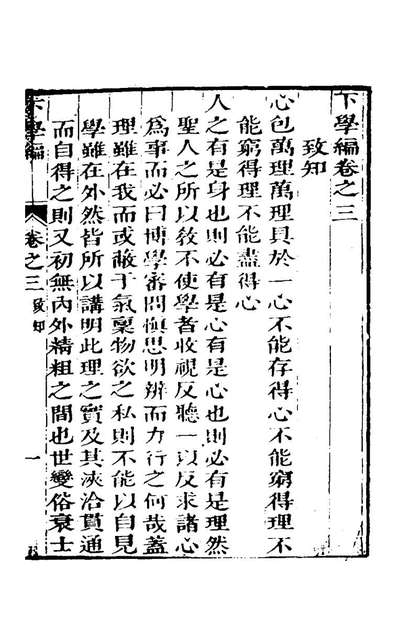 下學編卷之三
致知
心包萬理萬理具於一心不能存得心不能窮得理不
能窮得理不能盡得心
人之有是身也則必有是心有是心也則必有是理然
聖人之所以敎不使學者收視反聽一以反求諸心
爲事而必曰博學審問慎思明辨而力行之何哉蓋
理雖在我而或蔽于氣稟物欲之私則不能以自見
學雖在外然皆所以講明此理之實及其浹洽貫通
而自得之則又初無內外精粗之間也世變俗衰士
下學編
卷之三 致知
一